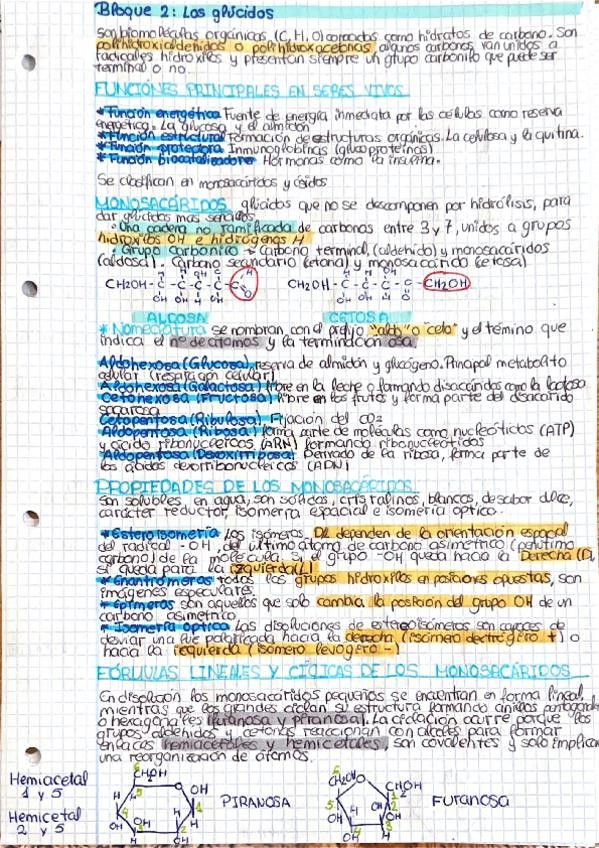 Bloque 2: Los glúcidos
Son biomoléculas orgánicas (C, H, O) conocidas como hidratos de carbono. Son
polihidroxialdehidos o polihidroxacetonas, algunos carbonos van unidos a
radicales hidroxilos y presentan siempre un grupo carbonilo que puede ser
terminal o no.
FUNCIONES PRINCIPALES EN SERES VIVOS
* Función energética Fuente de energía inmediata por las células como reserva
energética. La glucosa y el almidón
* Función estructural Formación de estructuras orgánicas. La celulosa y la quitina.
* Función protectora Inmunoglobinas (glucoproteínas)
* Función biocatalizadora Hormonas como la insulina.
Se clasifican en monosacáridos y ósidos
MONOSACÁRIDOS glúcidos que no se descomponen por hidrólisis, para
dar glúcidos mas sencillos.
· Una cadena no ramificada de carbonos entre 3 y 7, unidos a grupos
hidroxilos OH e hidrógenos H
· Grupo Carbonilo Carbono terminal (aldehido) y monosacáridos
(aldosa). Carbono secundario (cetona) y monosacárido (cetosa)
CH2OH - C - C - C - C - C O H
CH2OH - C - C - C - C - CH2OH
ALCOSA CETOSA
* Nomeclatura se nombran con el prefijo "aldo" o "ceto" y el témino que
indica el nº de átomos y la terminación osa.
Aldohexosa (Glucosa) reserva de almidón y glucógeno. Principal metabolito
celular (respiración celular)
Aldohexosa (Galactosa) libre en la leche o formando disacáridos como la lactosa
Cetohexosa (Fructosa) libre en los frutos y forma parte del disacárido
sacarosa
Cetopentosa (Ribulosa) Fijación del CO2
Aldopentosa (Ribosa) forma parte de moléculas como nucleóticos (ATP)
y ácido ribonucleicos (ARN) formando ribonucleótidos
Aldopentosa (Desoxirribosa) Derivado de la ribosa, forma parte de
los ácidos desoxirribonucleicos (ADN)
PROPIEDADES DE LOS MONOSACÁRIDOS
Son solubles en agua, son sólidos, cristalinos, blancos, de sabor dulce,
carácter reductor, isomería espacial e isomería optica.
* Estero isometría Los isómeros D/L dependen de la orientación espacial
del radical -OH del último átomo de carbono asimétrico (penúltimo
carbono) de la molécula. Si el grupo -OH queda hacia la Derecha (D),
si queda para la izquierda (L)
* Enantrómeros todos los grupos hidroxilos en posiciones opuestas, son
imágenes especulares.
* Epímeros son aquellos que solo cambia la posición del grupo OH de un
carbono asimétrico
* Isomería optica Las disoluciones de estereoisómeros son capaces de
desviar una luz polarizada hacia la derecha (isómero dectrogiro +) o
hacia la izquierda (isómero levógero -)
FÓRMULAS LINEALES Y CÍCLICAS DE LOS MONOSACÁRIDOS
En disolución los monosacáridos pequeños se encuentran en forma lineal,
mientras que los grandes ciclan su estructura formando anillos pentagonales
o hexagonales (furanosa y piranosa). La ciclación ocurre porque los
grupos aldehidos y cetonas reaccionan con alcoles para formar
enlaces hemiacetoles y hemicetales, son covalentes y solo implica
una reorganización de átomos.
Hemiacetal
1 y 5
Hemicetal
2 y 5
PIRANOSA
Furanosa